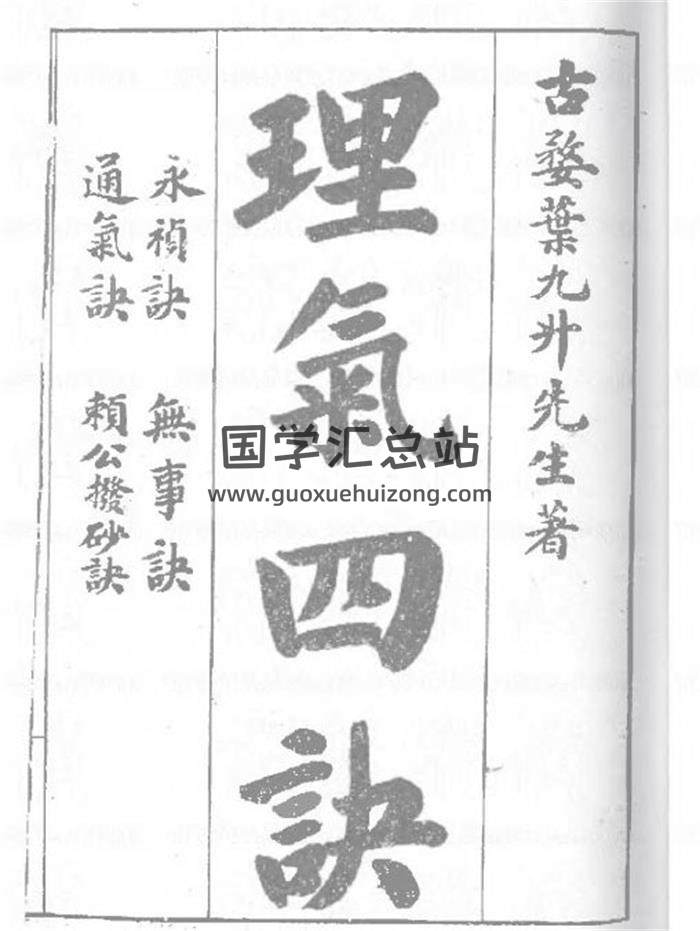 古婺葉九升先生著
理氣四訣
永禎訣 無事訣
通氣訣 賴公撥砂訣
国学汇总站
www.guoxuehuizong.com